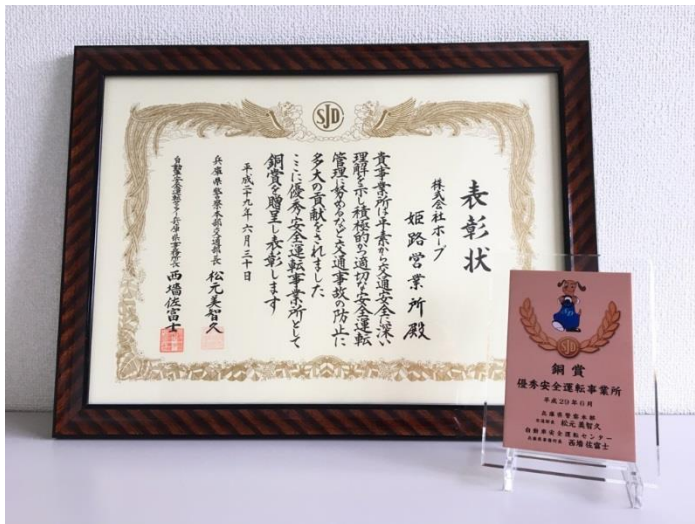 SJD
表彰状
株式会社ホープ
姫路営業所殿
貴事業所は平素から交通安全に深い
理解を示し積極的かつ適切な安全運転
管理に努めるなど交通事故の防止に
多大の貢献をされました
ここに優秀安全運転事業所として
銅賞を贈呈し表彰します
平成二十九年六月三十日
兵庫県警察本部交通部長 松元美智久
自動車安全運転センター兵庫県事務所長 西墻佐富士
SJD
銅賞
優秀安全運転事業所
平成29年6月
兵庫県警察本部
交通部長 松元美智久
自動車安全運転センター
兵庫県事務所長 西墻佐富士